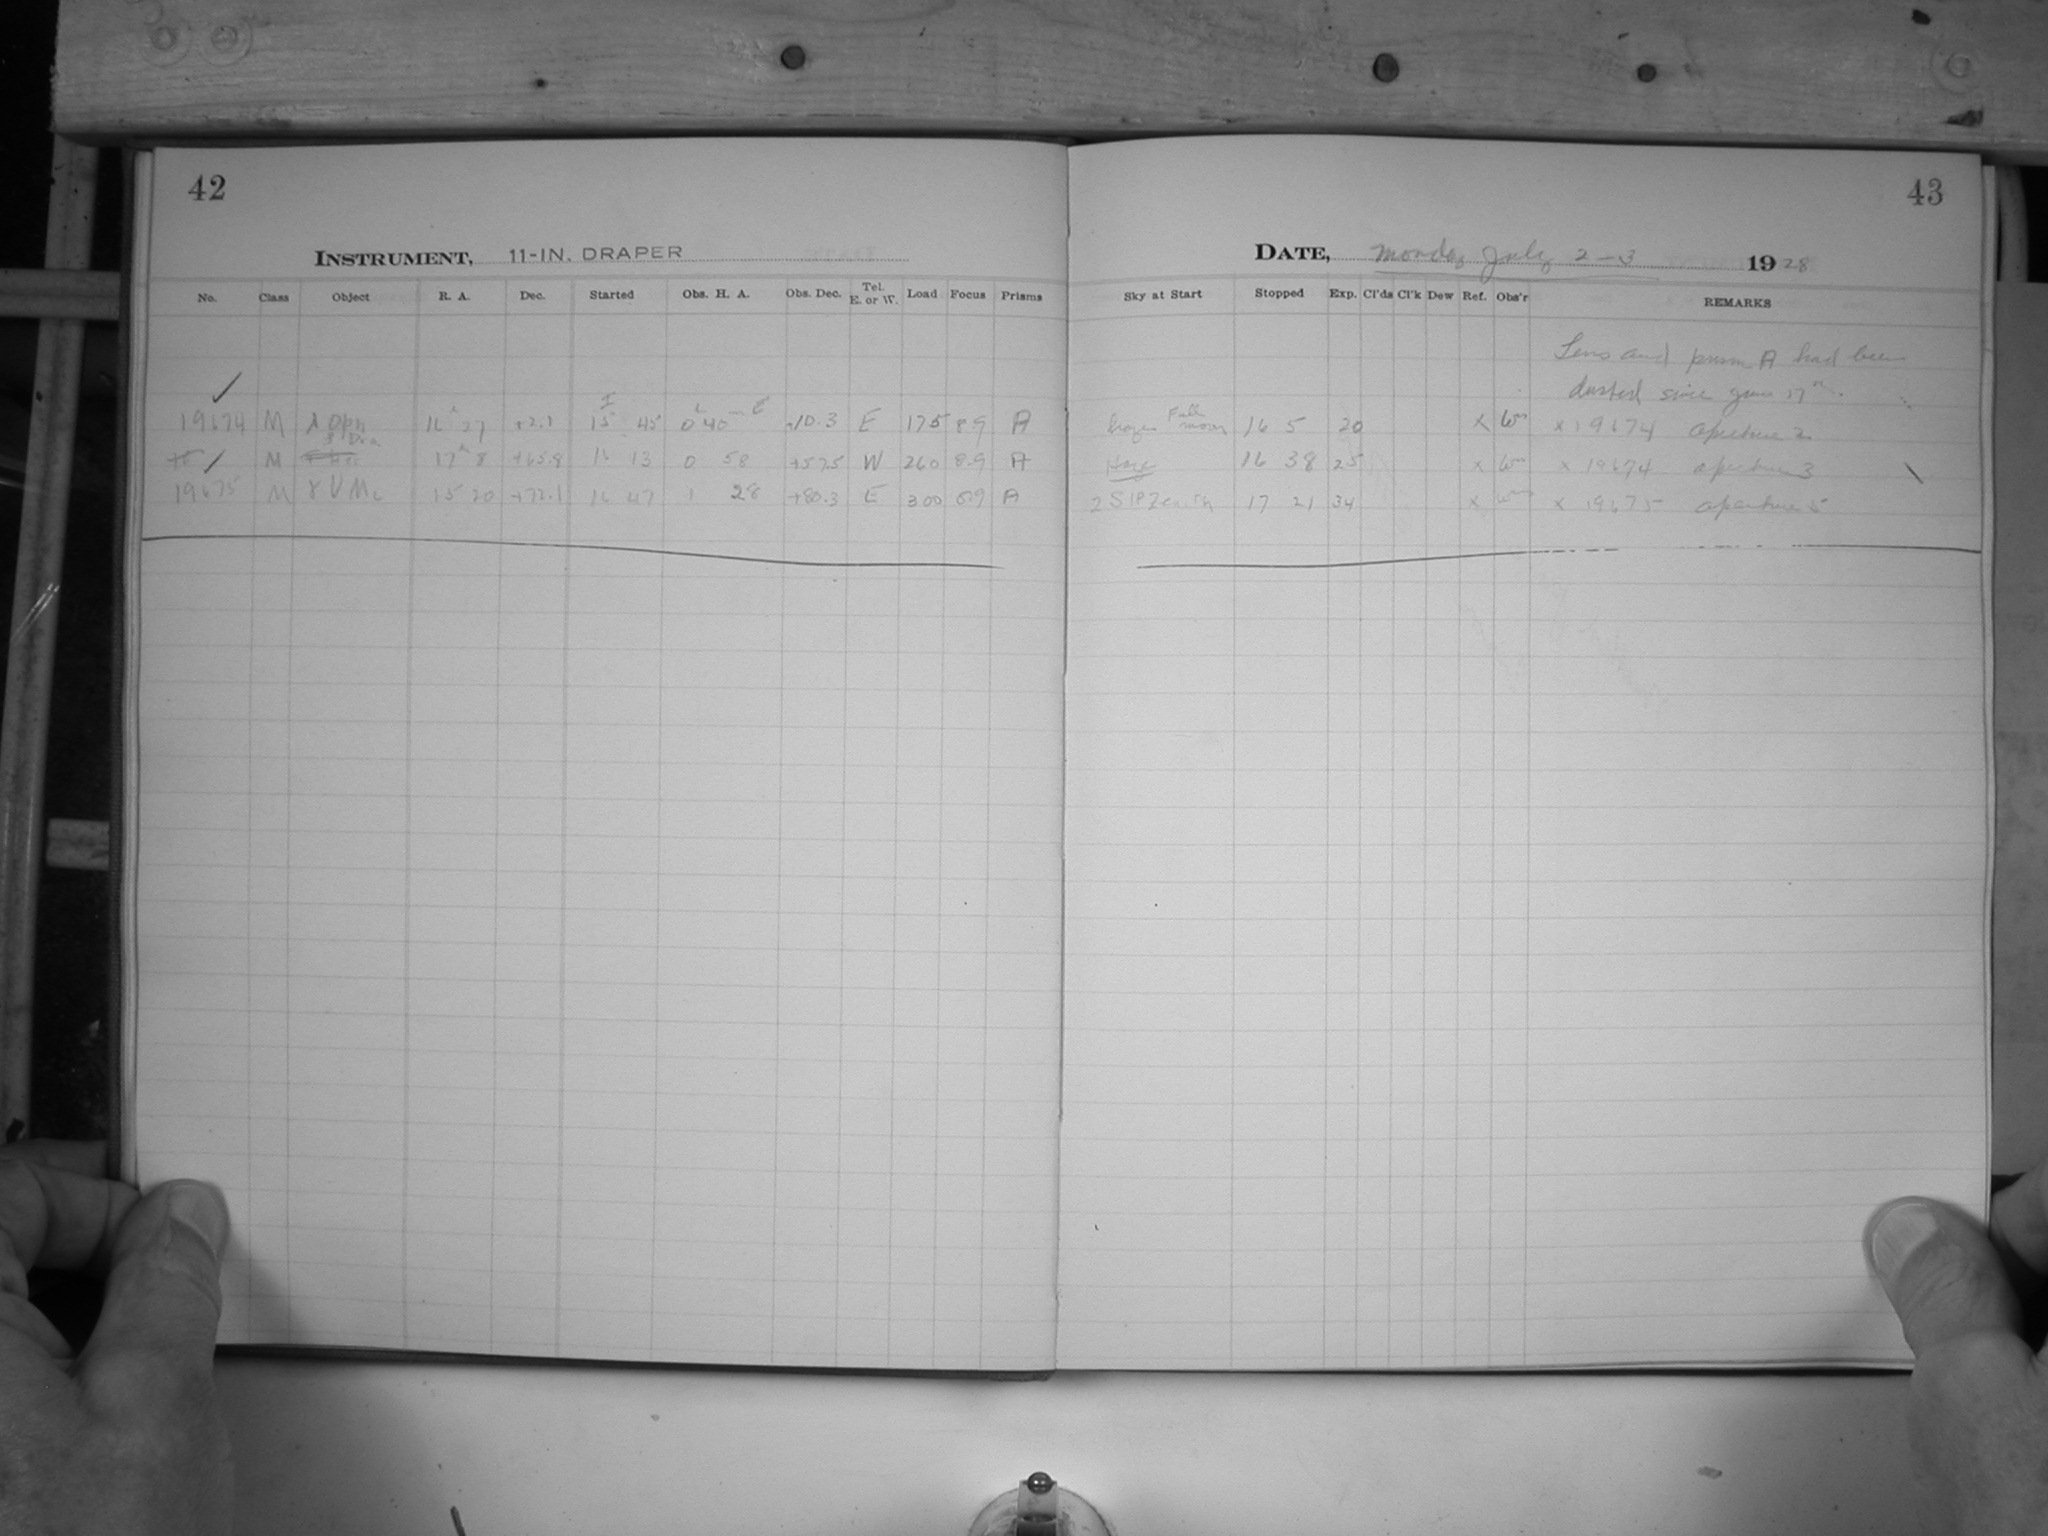 42
INSTRUMENT, 11-IN. DRAPER
No. Class Object R. A. Dec. Started Obs. H. A. Obs. Dec. Tel. E. or W. Load Focus Prisms
19674 M λ Oph 16h 27 +2.1 15 45 0h 40m E +10.3 E 175 8.9 A
M 17h 8 +65.8 16 13 0 58 +57.5 W 260 8.9 A
19675 M γ UMi 15 20 +72.1 16 47 1 28 +80.3 E 300 8.9 A
43
DATE, Monday July 2-3 1928
Sky at Start Stopped Exp. Cl'ds Cl'k Dew Ref. Obs'r REMARKS
Lens and prism A had been
dusted since June 17th.
Full moon 16 5 20 x x 19674 aperture 2
Haze 16 38 25 x x 19674 aperture 3
17 21 34 x x 19675 aperture 5